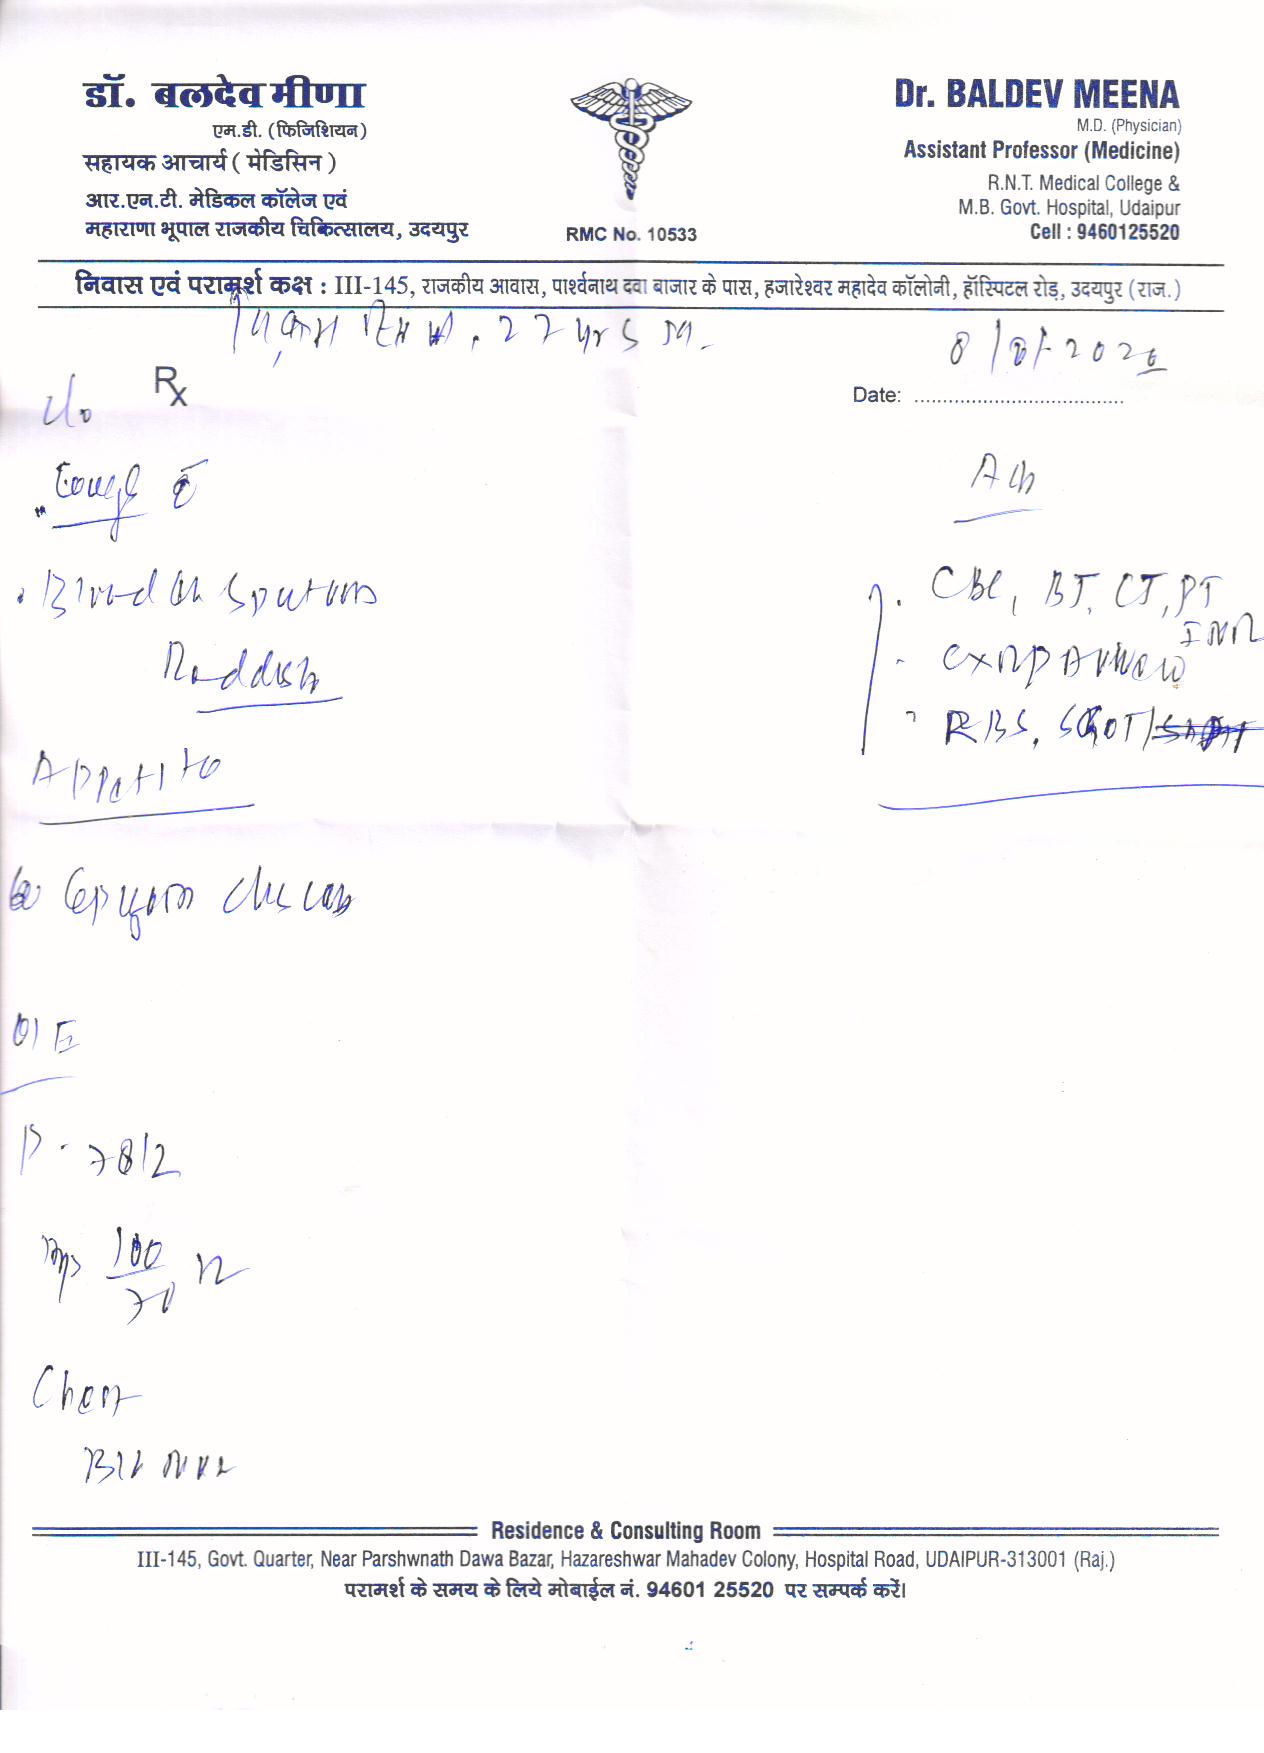 डॉ. बलदेव मीणा
एम.डी. (फिजिशियन)
सहायक आचार्य ( मेडिसिन )
आर.एन.टी. मेडिकल कॉलेज एवं
महाराणा भूपाल राजकीय चिकित्सालय, उदयपुर
RMC No. 10533
Dr. BALDEV MEENA
M.D. (Physician)
Assistant Professor (Medicine)
R.N.T. Medical College &
M.B. Govt. Hospital, Udaipur
Cell : 9460125520
निवास एवं परामर्श कक्ष : III-145, राजकीय आवास, पार्श्वनाथ दवा बाजार के पास, हजारेश्वर महादेव कॉलोनी, हॉस्पिटल रोड़, उदयपुर (राज.)
27 yrs M.
Rx
Date: ....................................
Cough c̄
Blood in Sputum
Reddish
Appetite
O/E
P - 78/2
100/70
Chest
CBC, BT, CT, PT
INR
CXR PA view
RBS, SGOT/
Residence & Consulting Room
III-145, Govt. Quarter, Near Parshwnath Dawa Bazar, Hazareshwar Mahadev Colony, Hospital Road, UDAIPUR-313001 (Raj.)
परामर्श के समय के लिये मोबाईल नं. 94601 25520 पर सम्पर्क करें।